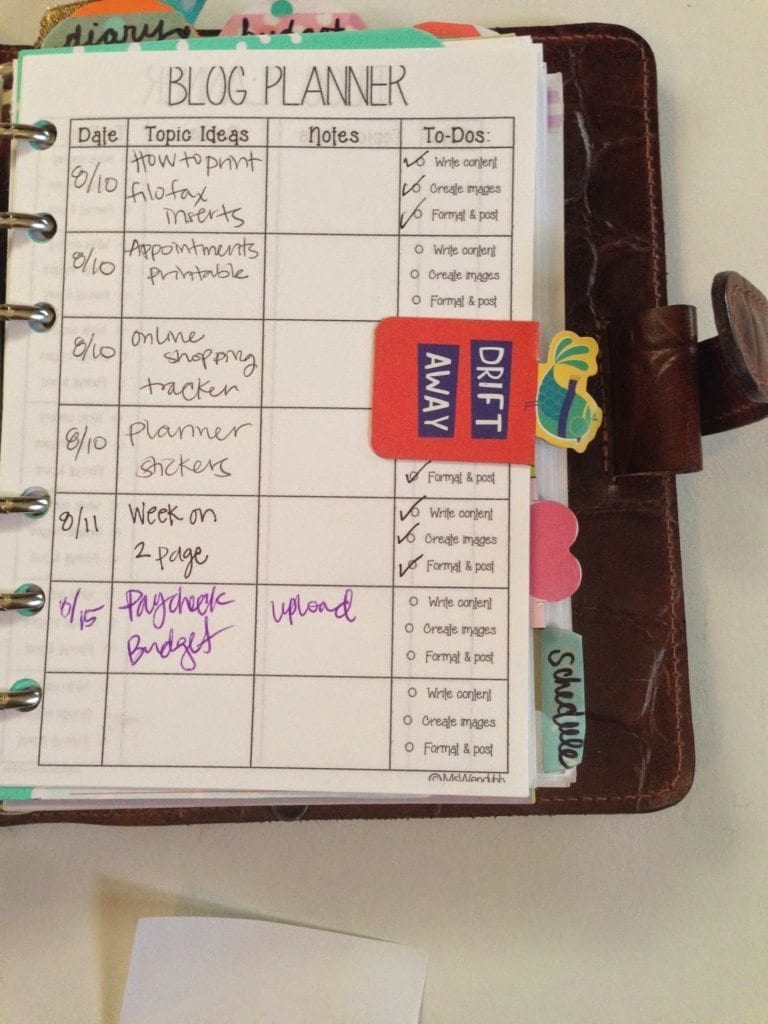 diary
budget
BLOG PLANNER
Date Topic Ideas Notes To-Dos:
8/10 How to print
filofax
inserts
Write content
Create images
Format & post
8/10 Appointments
printable
Write content
Create images
Format & post
8/10 online
shopping
tracker
DRIFT
AWAY
8/10 planner
stickers
Format & post
8/11 Week on
2 page
Write content
Create images
Format & post
8/15 Paycheck
Budget
upload
Write content
Create images
Format & post
Write content
Create images
Format & post
Schedule